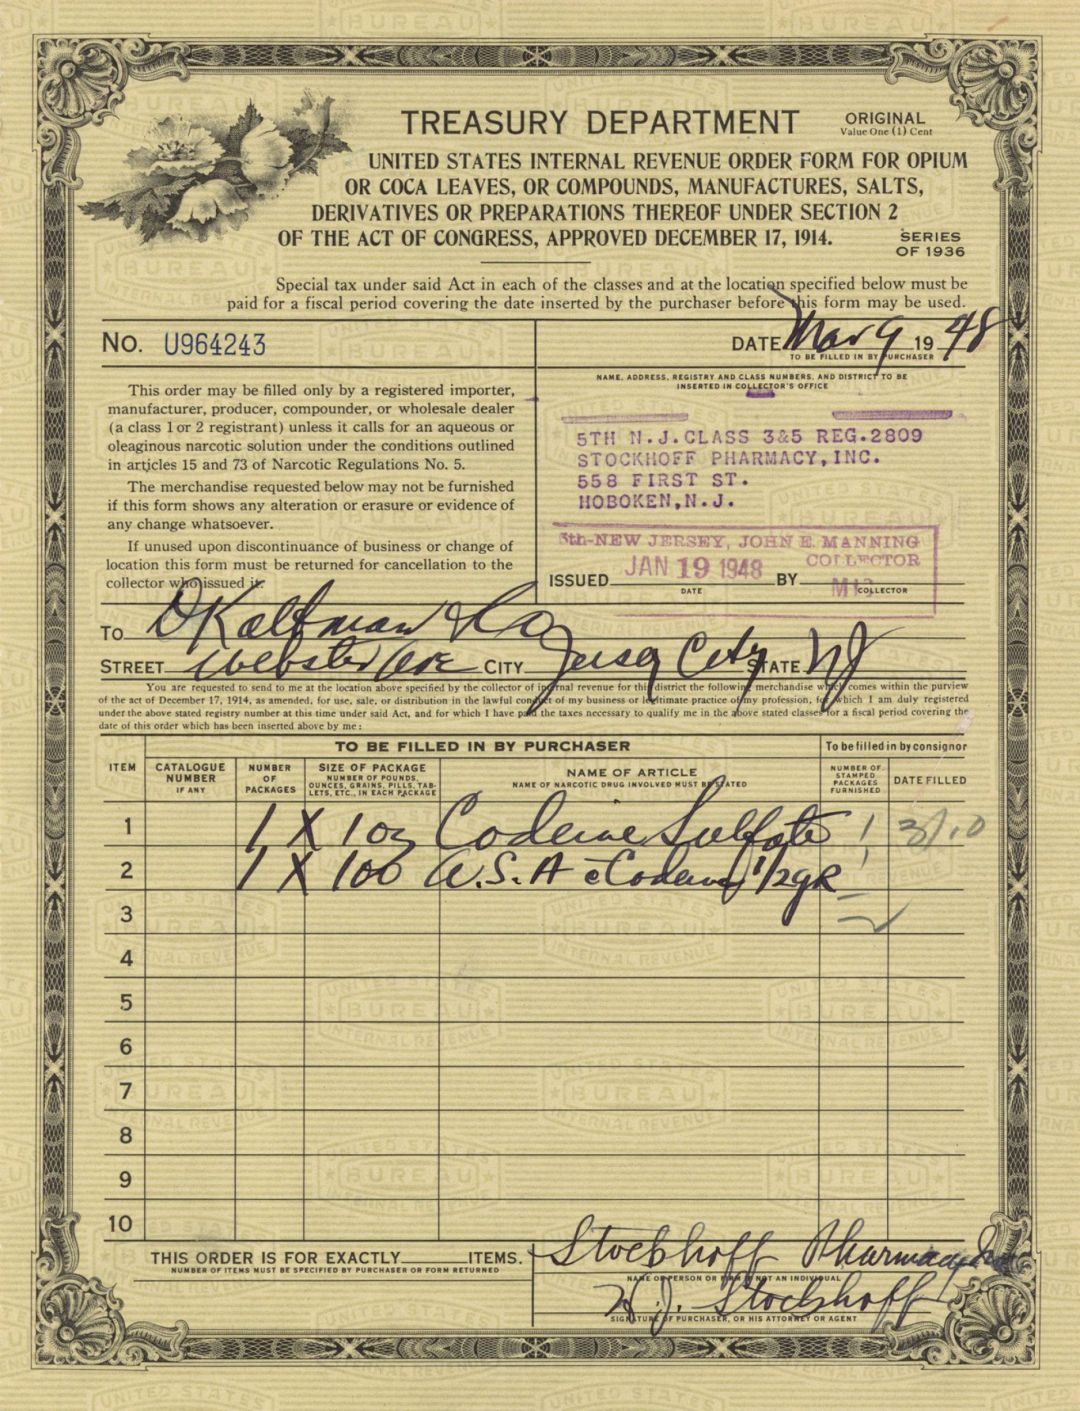 TREASURY DEPARTMENT
ORIGINAL
Value One (1) Cent
UNITED STATES INTERNAL REVENUE ORDER FORM FOR OPIUM
OR COCA LEAVES, OR COMPOUNDS, MANUFACTURES, SALTS,
DERIVATIVES OR PREPARATIONS THEREOF UNDER SECTION 2
OF THE ACT OF CONGRESS, APPROVED DECEMBER 17, 1914.
SERIES
OF 1936
Special tax under said Act in each of the classes and at the location specified below must be
paid for a fiscal period covering the date inserted by the purchaser before this form may be used.
No. U964243
DATE Mar 9 1948
TO BE FILLED IN BY PURCHASER
This order may be filled only by a registered importer,
manufacturer, producer, compounder, or wholesale dealer
(a class 1 or 2 registrant) unless it calls for an aqueous or
oleaginous narcotic solution under the conditions outlined
in articles 15 and 73 of Narcotic Regulations No. 5.
The merchandise requested below may not be furnished
if this form shows any alteration or erasure or evidence of
any change whatsoever.
If unused upon discontinuance of business or change of
location this form must be returned for cancellation to the
collector who issued it.
NAME, ADDRESS, REGISTRY AND CLASS NUMBERS, AND DISTRICT TO BE
INSERTED IN COLLECTOR'S OFFICE
5TH N.J.CLASS 3&5 REG.2809
STOCKHOFF PHARMACY,INC.
558 FIRST ST.
HOBOKEN,N.J.
5th-NEW JERSEY, JOHN E. MANNING
COLLECTOR
ISSUED JAN 19 1948 BY
DATE
COLLECTOR
TO D Kalfman & Co
STREET Webster Ave CITY Jersey City STATE NJ
You are requested to send to me at the location above specified by the collector of internal revenue for this district the following merchandise which comes within the purview
of the act of December 17, 1914, as amended, for use, sale, or distribution in the lawful conduct of my business or legitimate practice of my profession, for which I am duly registered
under the above stated registry number at this time under said Act, and for which I have paid the taxes necessary to qualify me in the above stated classes for a fiscal period covering the
date of this order which has been inserted above by me:
TO BE FILLED IN BY PURCHASER
To be filled in by consignor
ITEM
CATALOGUE
NUMBER
IF ANY
NUMBER
OF
PACKAGES
SIZE OF PACKAGE
NUMBER OF POUNDS,
OUNCES, GRAINS, PILLS, TAB-
LETS, ETC., IN EACH PACKAGE
NAME OF ARTICLE
NAME OF NARCOTIC DRUG INVOLVED MUST BE STATED
NUMBER OF
STAMPED
PACKAGES
FURNISHED
DATE FILLED
1 1 X 1 oz Codeine Sulfate 1 3/10
2 1 X 100 A.S.A c Codeine 1/2 gR 1
3
4
5
6
7
8
9
10
THIS ORDER IS FOR EXACTLY ITEMS.
NUMBER OF ITEMS MUST BE SPECIFIED BY PURCHASER OR FORM RETURNED
Stockhoff Pharmacy Inc
NAME OF PERSON OR FIRM IF NOT AN INDIVIDUAL
H. J. Stockhoff
SIGNATURE OF PURCHASER, OR HIS ATTORNEY OR AGENT